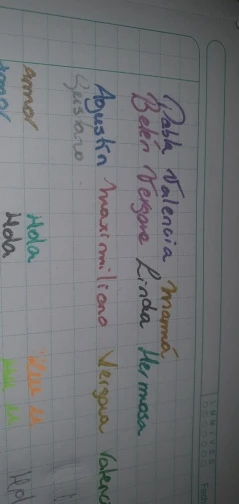 Pabla Valencia mamá
Belén Vergara Linda Hermosa
Agustín maximiliano Vergara
Gustavo
amor Hola
amor Hola